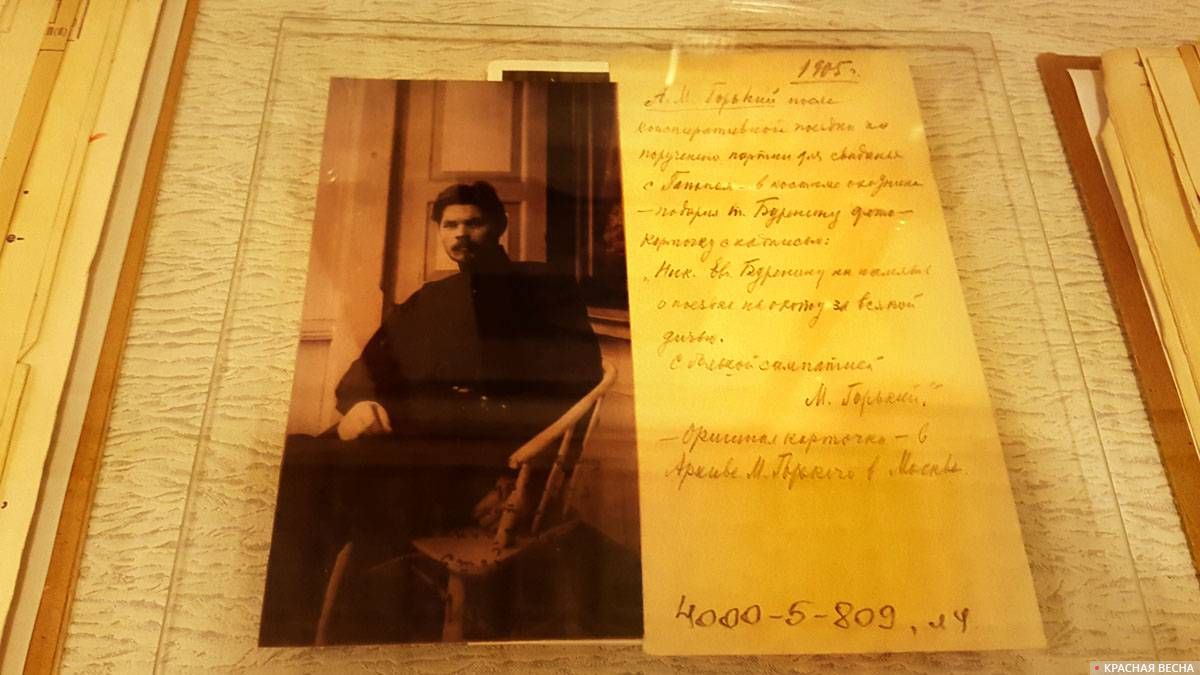 1905 г.
А. М. Горький после
конспиративной поездки по
поручению партии для свиданья
с Гапоном – в костюме охотника
– подарил т. Буренину фото–
карточку с надписью:
„Ник. Евг. Буренину на память
о поездке на охоту за всякой
дичью.
С большой симпатией
М. Горький."
– Оригинал карточки – в
Архиве М. Горького в Москве.
4000-5-809, л 4
КРАСНАЯ ВЕСНА